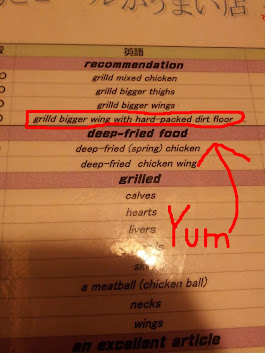 がうまい店
英語
recommendation
grilld mixed chicken
grilld bigger thighs
grilld bigger wings
grilld bigger wing with hard-packed dirt floor
deep-fried food
deep-fried (spring) chicken
deep-fried chicken wing
grilled
calves
hearts
livers
Yum
a meatball (chicken ball)
necks
wings
an excellent article